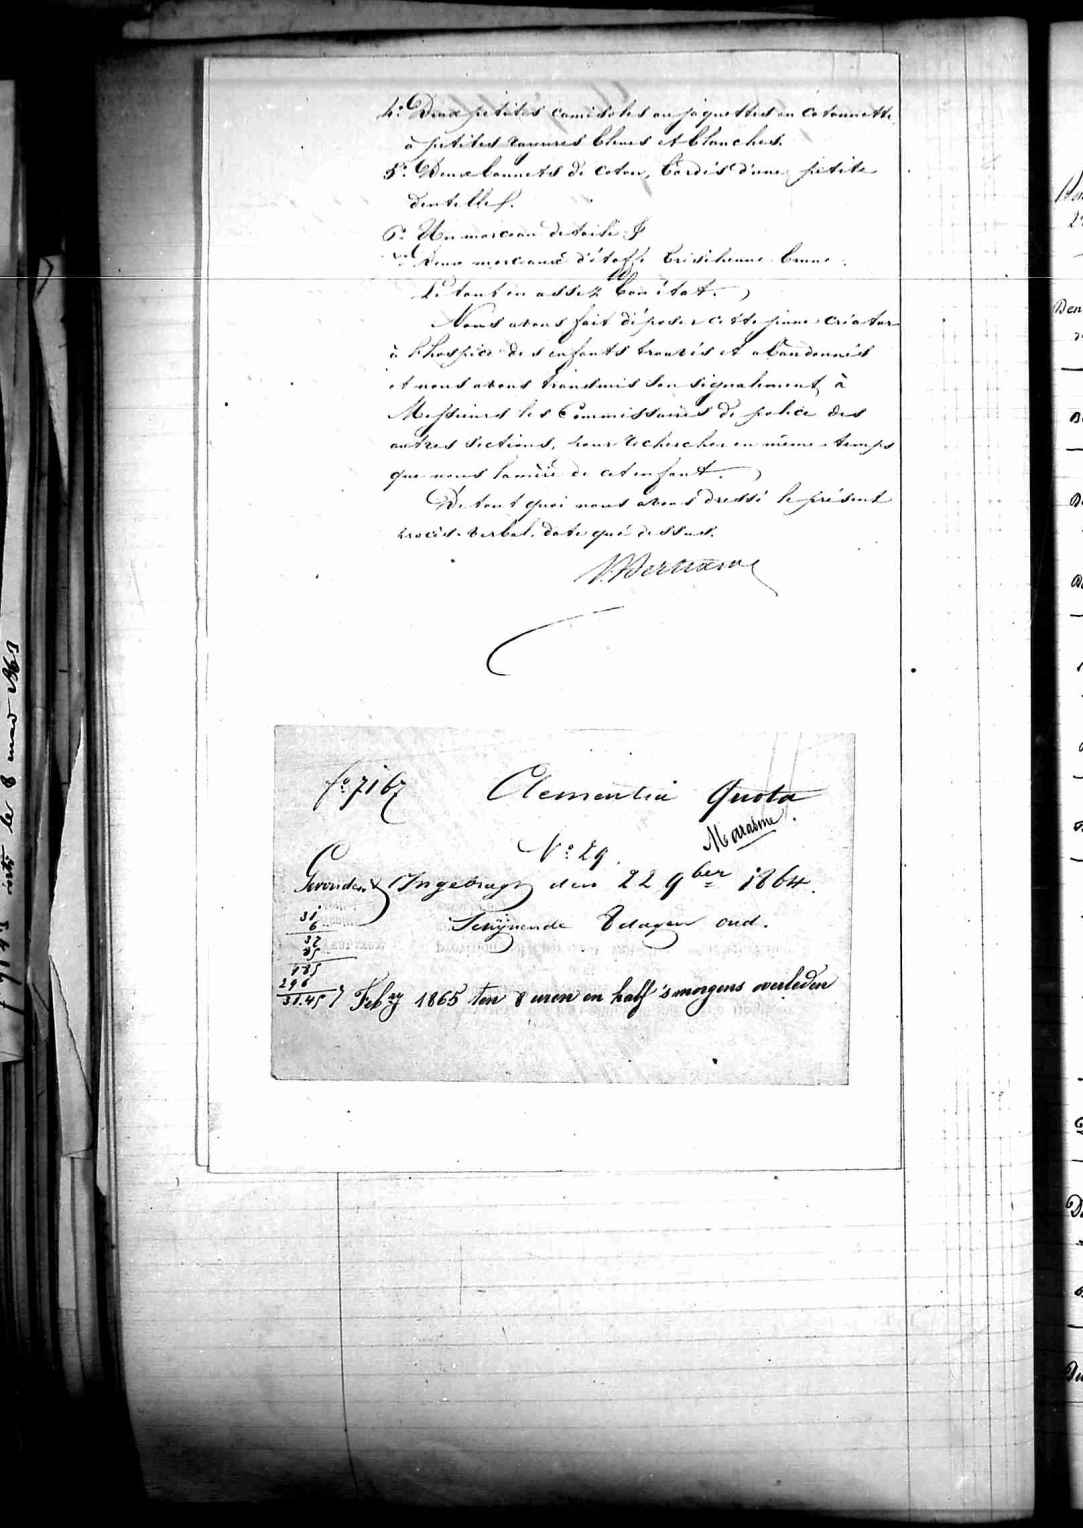 4° Deux petites camisoles ou jaquettes en cotonnette
à petites rayures bleues et blanches.
5° Deux bonnets de coton, bordés d'une petite
dentelle f.
6° Un morceau de toile f
7° Deux morceaux d'étoffe brune.
Le tout en assez bon état.
Nous avons fait déposer cette jeune créatur
à l'hospice des enfants trouvés et abandonnés
et nous avons transmis son signalement à
Messieurs les Commissaires de police des
autres sections, pour rechercher en même temps
que nous la mère de cet enfant.
De tout quoi nous avons dressé le présent
procès-verbal, date que dessus.
f° 7167 Clementia Quota
Marasme
N° 29.
Gevonden & Ingebragt den 22 9ber 1864.
Schijnende 8 dagen oud.
31
6
37
85
185
296
31.45
7 Feby 1865 ten 8 uren en half 's morgens overleden
sorti le 8 mars 1865